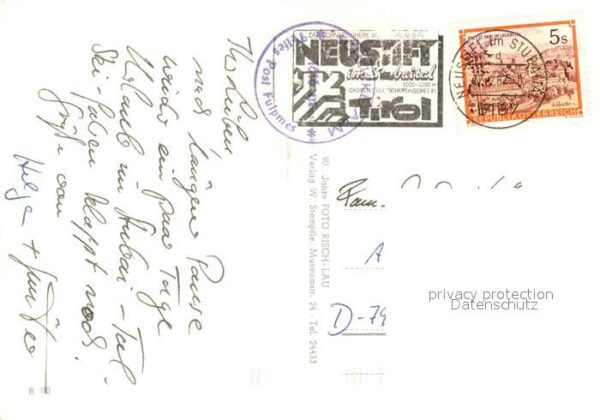 Ihr Lieben
nach langer Pause
wieder ein paar Tage
Urlaub im Stubai-Tal
Ski fahren klappt noch!
Grüße von
Helga +
NEUSTIFT
im Stubaital
Tirol
Hotel Post Fulpmes
5s
NEUSTIFT im STUBAITAL
REPUBLIK ÖSTERREICH
80 Jahre FOTO RISCH-LAU
Verlag W. Stempfle, Museumstr. 24 - Tel. 24433
Fam.
A
D-79
privacy protection
Datenschutz
B